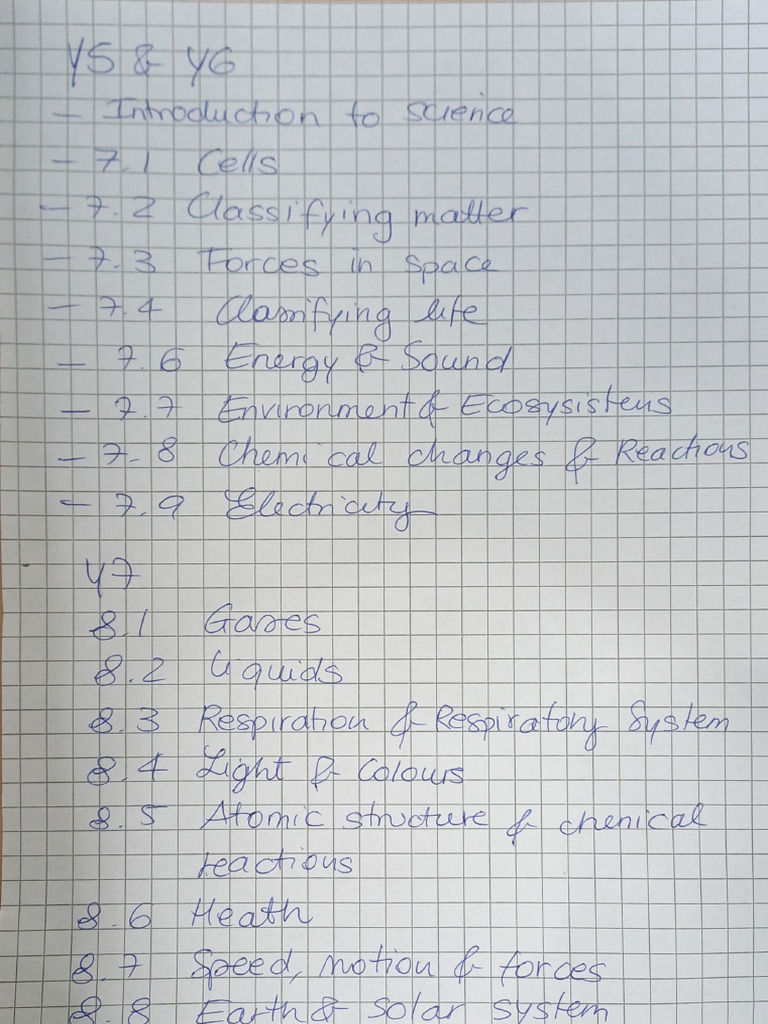 Y5 & Y6
- Introduction to science
- 7.1 Cells
- 7.2 Classifying matter
- 7.3 Forces in space
- 7.4 Classifying life
- 7.6 Energy & Sound
- 7.7 Environment & Ecosysistems
- 7.8 Chemical changes & Reactions
- 7.9 Electricity
Y7
8.1 Gases
8.2 Liquids
8.3 Respiration & Respiratory System
8.4 Light & Colours
8.5 Atomic structure & chemical
reactions
8.6 Heath
8.7 Speed, motion & forces
8.8 Earth & Solar system